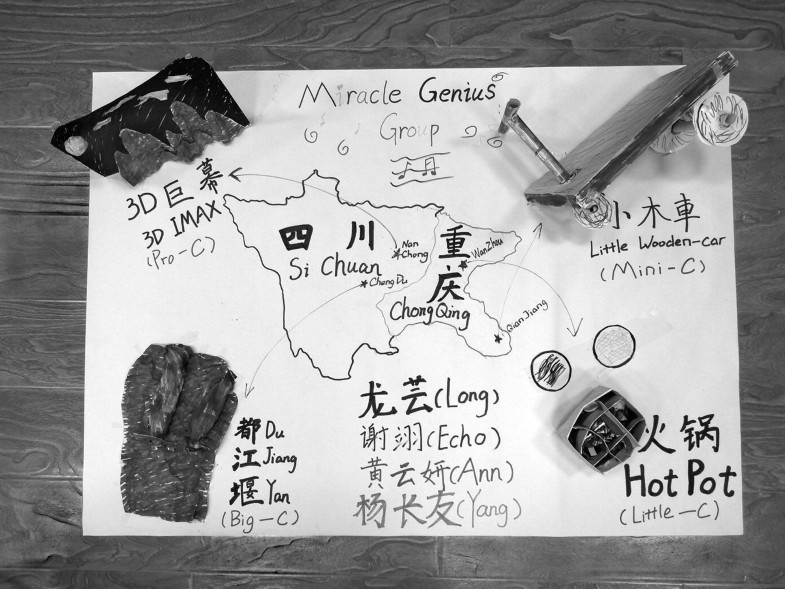 Miracle Genius
Group
3D巨幕
3D IMAX
(Pro-C)
小木車
Little Wooden-car
(Mini-C)
四川
Si Chuan
Nan Chong
Cheng Du
重庆
ChongQing
WanZhou
QianJiang
都 Du
江 Jiang
堰 Yan
(Big-C)
龙芸(Long)
谢翊(Echo)
黄云妍(Ann)
杨长友(Yang)
火锅
Hot Pot
(Little-C)